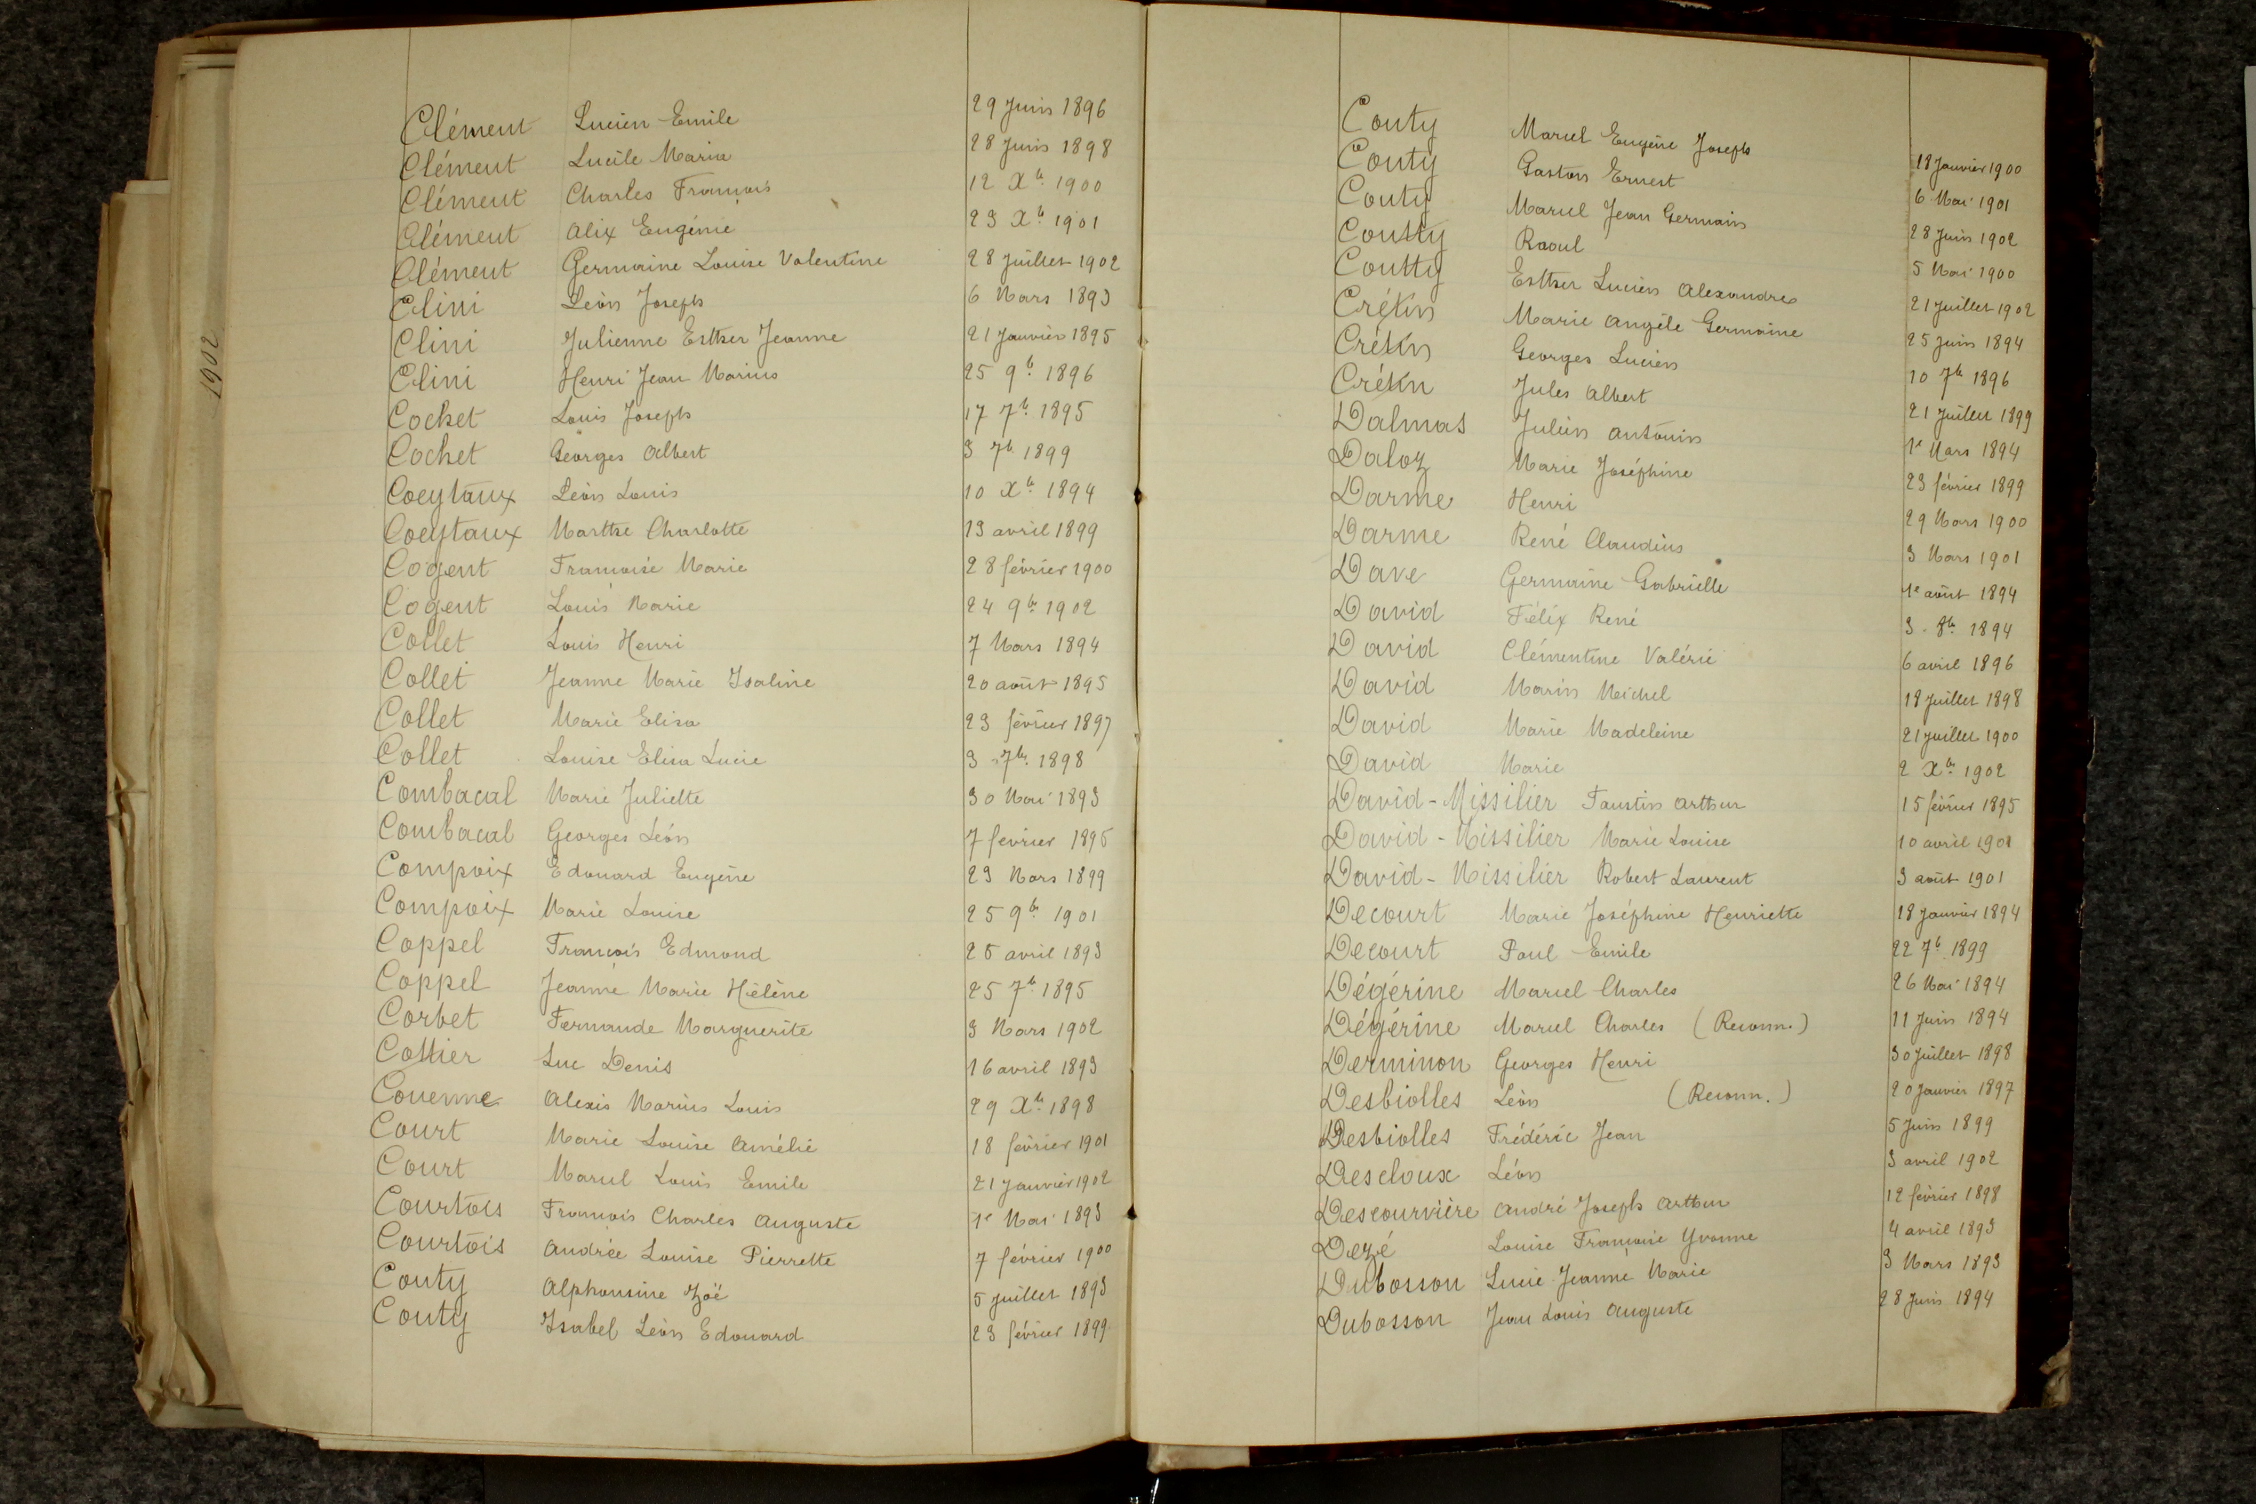 1902
Clément Lucien Emile 29 Juin 1896
Clément Lucile Maria 28 Juin 1898
Clément Charles François 12 Xb. 1900
Clément Alix Eugénie 23 Xb. 1901
Clément Germaine Louise Valentine 28 Juillet 1902
Clini Léon Joseph 6 Mars 1893
Clini Julienne Esther Jeanne 21 Janvier 1895
Clini Henri Jean Marius 25 9b. 1896
Cochet Louis Joseph 17 7b. 1895
Cochet Georges Albert 3 7b. 1899
Coeytaux Léon Louis 10 Xb. 1894
Coeytaux Marthe Charlotte 13 avril 1899
Cogent Françoise Marie 28 février 1900
Cogent Louis Marie 24 9b. 1902
Collet Louis Henri 7 Mars 1894
Collet Jeanne Marie Isaline 20 août 1895
Collet Marie Elisa 23 février 1897
Collet Louise Elisa Lucie 3 7b. 1898
Combacal Marie Juliette 30 Mai 1893
Combacal Georges Léon 7 février 1895
Compoix Edouard Eugène 23 Mars 1899
Compoix Marie Louise 25 9b. 1901
Coppel François Edmond 25 avril 1893
Coppel Jeanne Marie Hélène 25 7b. 1895
Corbet Fernande Marguerite 3 Mars 1902
Cottier Luc Denis 16 avril 1893
Couenne Alexis Marius Louis 29 Xb. 1898
Court Marie Louise Amélie 18 février 1901
Court Marcel Louis Emile 21 Janvier 1902
Courtois François Charles Auguste 1e Mai 1893
Courtois Andrée Louise Pierrette 7 février 1900
Couty Alphonsine Zöé 5 Juillet 1893
Couty Isabel Léon Edouard 23 février 1899
Couty Marcel Eugène Joseph 18 Janvier 1900
Couty Gaston Ernest 6 Mai 1901
Couty Marcel Jean Germain 28 Juin 1902
Coutty Raoul 5 Mai 1900
Coutty Esther Lucien Alexandre 21 Juillet 1902
Crétin Marie Angèle Germaine 25 Juin 1894
Crétin Georges Lucien 10 7b. 1896
Crétin Jules Albert 21 Juillet 1899
Dalmas Julien Antonin 1e Mars 1894
Daloz Marie Joséphine 23 février 1899
Darme Henri 29 Mars 1900
Darme René Claudius 3 Mars 1901
Dave Germaine Gabrielle 1e août 1894
David Félix René 3 8b. 1894
David Clémentine Valérie 6 avril 1896
David Marin Michel 18 Juillet 1898
David Marie Madeleine 21 Juillet 1900
David Marie 2 Xb. 1902
David-Missilier Faustin Arthur 15 février 1895
David-Missilier Marie Louise 10 avril 1901
David-Missilier Robert Laurent 3 août 1901
Decourt Marie Joséphine Henriette 18 Janvier 1894
Decourt Paul Emile 22 7b. 1899
Dégérine Marcel Charles 26 Mai 1894
Dégérine Marcel Charles (Reconn.) 11 Juin 1894
Derminon Georges Henri 30 Juillet 1898
Desbiolles Léon (Reconn.) 20 Janvier 1897
Desbiolles Frédéric Jean 5 Juin 1899
Descloux Léon 3 avril 1902
Descourvière André Joseph Arthur 12 février 1898
Dezé Louise Françoise Yvonne 4 avril 1893
Dubosson Lucie Jeanne Marie 3 Mars 1893
Dubosson Jean Louis Auguste 28 Juin 1894